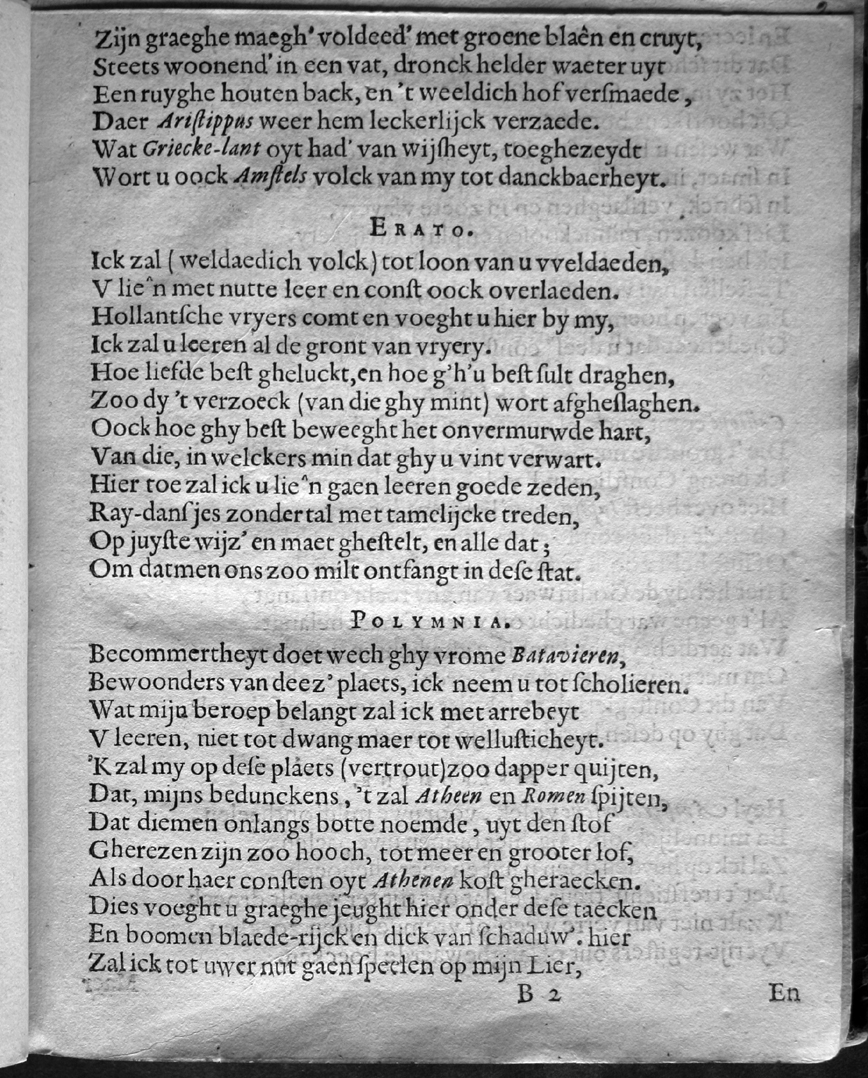 Zijn graeghe maegh' voldeed' met groene blaên en cruyt,
Steets woonend' in een vat, dronck helder waeter uyt
Een ruyghe houten back, en 't weeldich hof verſmaede,
Daer Ariſtippus weer hem leckerlijck verzaede.
Wat Griecke-lant oyt had' van wijſheyt, toeghezeydt
Wort u oock Amſtels volck van my tot danckbaerheyt.
ERATO.
Ick zal (weldaedich volck) tot loon van u vveldaeden,
V lie^n met nutte leer en conſt oock overlaeden.
Hollantſche vryers comt en voeght u hier by my,
Ick zal u leeren al de gront van vryery.
Hoe liefde beſt gheluckt, en hoe g'h'u beſt ſult draghen,
Zoo dy 't verzoeck (van die ghy mint) wort afgheſlaghen.
Oock hoe ghy beſt beweeght het onvermurwde hart,
Van die, in welckers min dat ghy u vint verwart.
Hier toe zal ick u lie^n gaen leeren goede zeden,
Ray-danſjes zonder tal met tamelijcke treden,
Op juyſte wijz' en maet gheſtelt, en alle dat;
Om datmen ons zoo milt ontfangt in deſe ſtat.
POLYMNIA.
Becommertheyt doet wech ghy vrome Batavieren,
Bewoonders van deez' plaets, ick neem u tot ſcholieren.
Wat mijn beroep belangt zal ick met arrebeyt
V leeren, niet tot dwang maer tot welluſticheyt.
'K zal my op deſe plaets (vertrout) zoo dapper quijten,
Dat, mijns bedunckens, 't zal Atheen en Romen ſpijten,
Dat diemen onlangs botte noemde, uyt den ſtof
Gherezen zijn zoo hooch, tot meer en grooter lof,
Als door haer conſten oyt Athenen koſt gheraecken.
Dies voeght u graeghe jeught hier onder deſe taecken
En boomen blaede-rijck en dick van ſchaduw'. hier
Zal ick tot uwer nut gaen ſpeelen op mijn Lier,
B 2 En